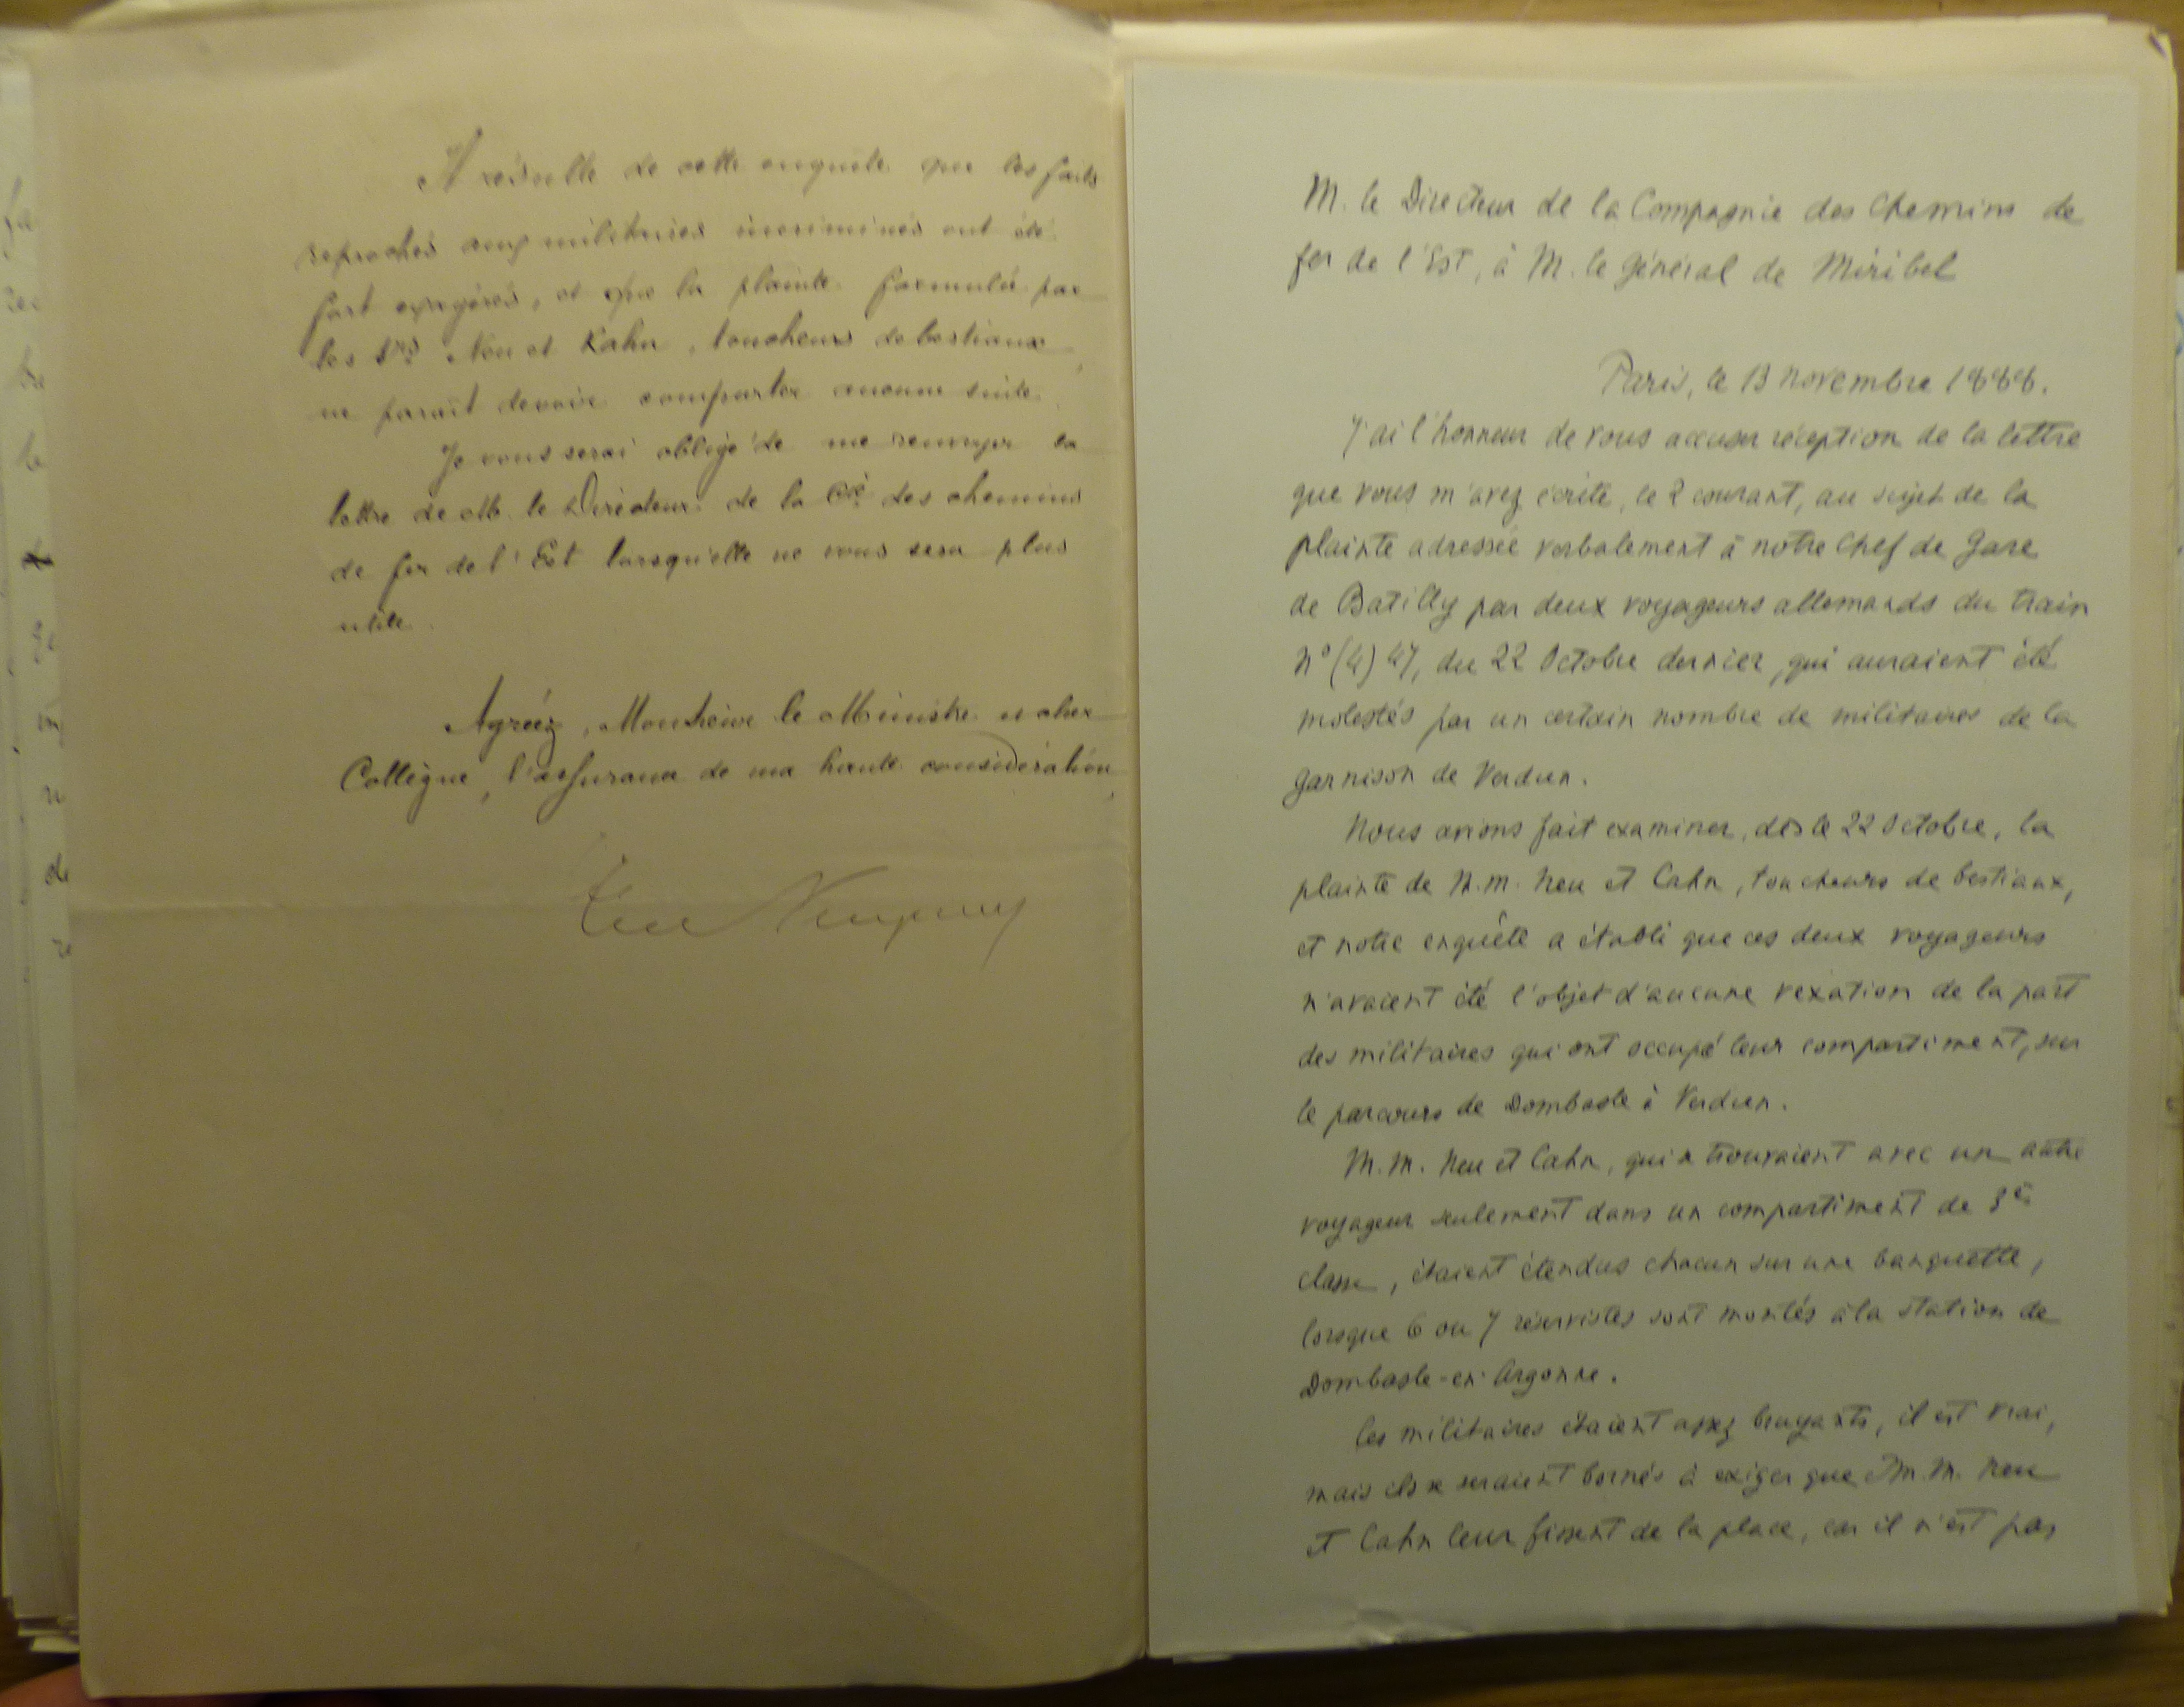 Il résulte de cette enquête que les faits
reprochés aux militaires incriminés ont été
fort exagérés, et que la plainte formulée par
les Srs Neu et Kahn, toucheurs de bestiaux,
ne parait devoir comporter aucune suite.
Je vous serai obligé de me renvoyer la
lettre de M. le Directeur de la Cie des chemins
de fer de l'Est lorsqu'elle ne vous sera plus
utile.
Agréez, Monsieur le Ministre et cher
Collègue, l'assurance de ma haute considération,
M. le Directeur de la Compagnie des Chemins de
fer de l'Est, à M. le Général de Miribel
Paris, le 13 novembre 1888.
J'ai l'honneur de vous accuser réception de la lettre
que vous m'avez écrite, le 2 courant, au sujet de la
plainte adressée verbalement à notre Chef de Gare
de Batilly par deux voyageurs allemands du train
n° (4) 47, du 22 Octobre dernier, qui auraient été
molestés par un certain nombre de militaires de la
garnison de Verdun.
Nous avions fait examiner, dès le 22 Octobre, la
plainte de M.M. Neu et Cahn, toucheurs de bestiaux,
et notre enquête a établi que ces deux voyageurs
n'avaient été l'objet d'aucune vexation de la part
des militaires qui ont occupé leur compartiment, sur
le parcours de Dombasle à Verdun.
M.M. Neu et Cahn, qui se trouvaient avec un autre
voyageur seulement dans un compartiment de 3e
classe, étaient étendus chacun sur une banquette,
lorsque 6 ou 7 réservistes sont montés à la station de
Dombasle-en-Argonne.
Ces militaires étaient assez bruyants, il est vrai,
mais ils se seraient bornés à exiger que M.M. Neu
et Cahn leur fissent de la place, car il n'est pas